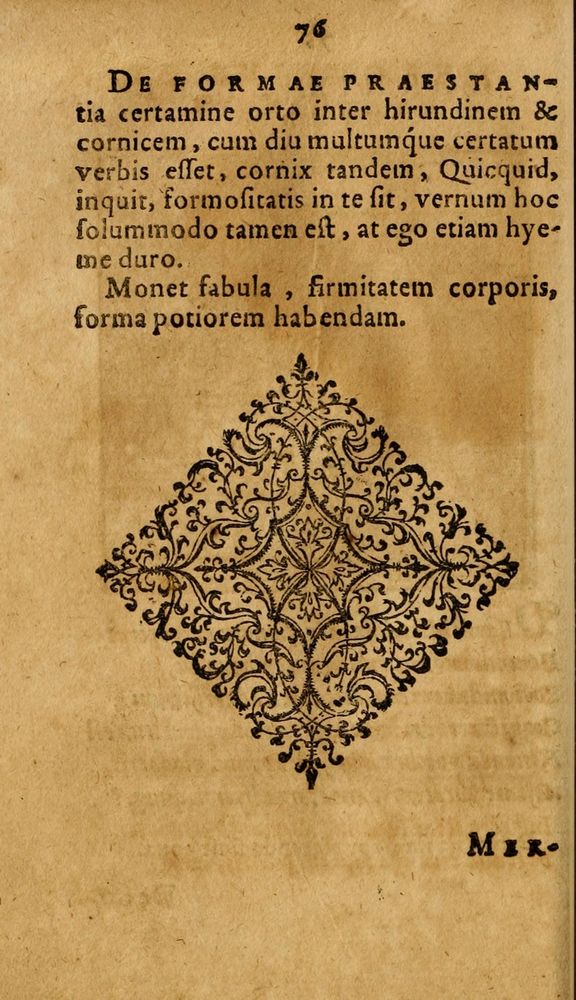 76
DE FORMAE PRAESTAN-
tia certamine orto inter hirundinem &
cornicem, cum diu multumq́ue certatum
verbis eſſet, cornix tandem, Quicquid,
inquit, formoſitatis in te ſit, vernum hoc
ſolummodo tamen eſt, at ego etiam hye-
me duro.
Monet fabula, firmitatem corporis,
forma potiorem habendam.
MER-